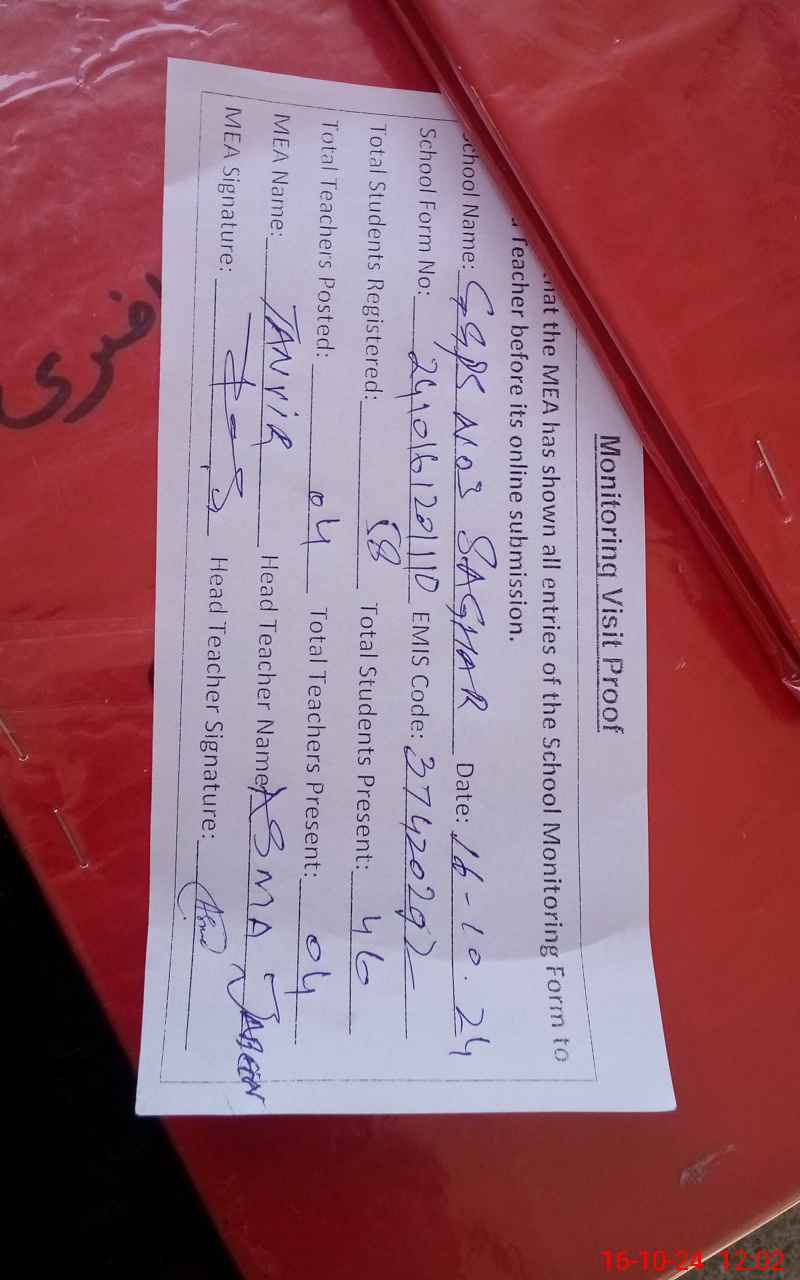 Monitoring Visit Proof
that the MEA has shown all entries of the School Monitoring Form to
Teacher before its online submission.
School Name: GGPS NO3 SAGHAR Date: 16-10.24
School Form No: 2410161201110 EMIS Code: 37420292
Total Students Registered: 58 Total Students Present: 46
Total Teachers Posted: 04 Total Teachers Present: 04
MEA Name: TANVIR Head Teacher Name: ASMA JABEEN
MEA Signature: Head Teacher Signature: Asma
16-10-24 12:02